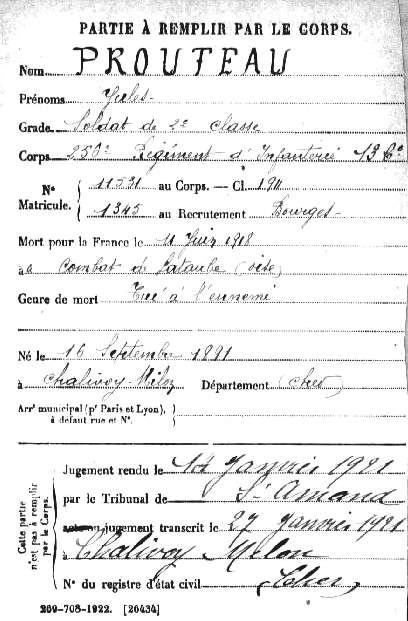 PARTIE À REMPLIR PAR LE CORPS.
Nom PROUTEAU
Prénoms Jules
Grade Soldat de 2e classe
Corps 256e Régiment d'Infanterie 19e Cie
Nº Matricule. 11531 au Corps. — Cl. 1911
1345 au Recrutement Bourges
Mort pour la France le 11 Juin 1918
à Combat de Lataule (Oise)
Genre de mort Tué à l'ennemi
Né le 16 Septembre 1891
à Chalivoy-Milon Département Cher
Arrt municipal (pr Paris et Lyon),
à défaut rue et Nº.
Cette partie n'est pas à remplir par le Corps.
Jugement rendu le 14 Janvier 1921
par le Tribunal de St Amand
acte ou jugement transcrit le 27 Janvier 1921
à Chalivoy Milon
Nº du registre d'état civil (Cher)
269-708-1922. [26434]